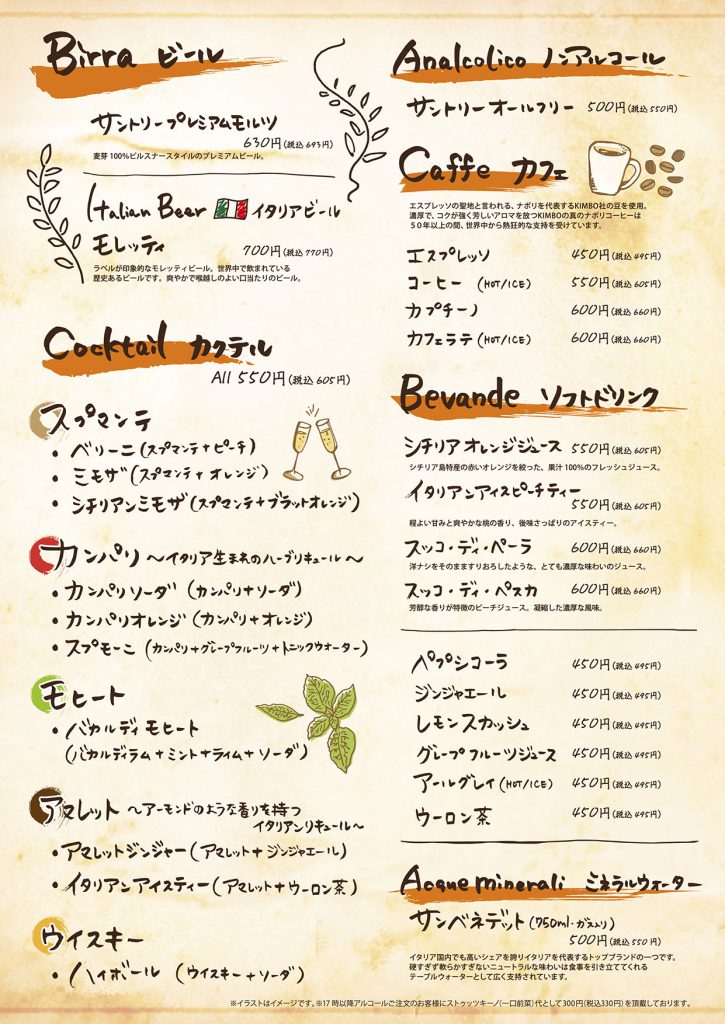 Birra ビール
サントリープレミアムモルツ
630円(税込693円)
麦芽100%ピルスナースタイルのプレミアムビール。
Italian Beer イタリアビール
モレッティ 700円(税込770円)
ラベルが印象的なモレッティビール。世界中で飲まれている
歴史あるビールです。爽やかで喉越しのよい口当たりのビール。
Cocktail カクテル
All 550円(税込605円)
スプマンテ
・ベリーニ(スプマンテ+ピーチ)
・ミモザ(スプマンテ+オレンジ)
・シチリアンミモザ(スプマンテ+ブラッドオレンジ)
カンパリ ～イタリア生まれのハーブリキュール～
・カンパリソーダ(カンパリ+ソーダ)
・カンパリオレンジ(カンパリ+オレンジ)
・スプモーニ(カンパリ+グレープフルーツ+トニックウォーター)
モヒート
・バカルディモヒート
(バカルディラム+ミント+ライム+ソーダ)
アマレット ～アーモンドのような香りを持つ
イタリアンリキュール～
・アマレットジンジャー(アマレット+ジンジャエール)
・イタリアンアイスティー(アマレット+ウーロン茶)
ウイスキー
・ハイボール (ウイスキー+ソーダ)
Analcolico ノンアルコール
サントリーオールフリー 500円(税込550円)
Caffe カフェ
エスプレッソの聖地と言われる、ナポリを代表するKIMBO社の豆を使用。
濃厚で、コクが強く芳しいアロマを放つKIMBOの真のナポリコーヒーは
50年以上の間、世界中から熱狂的な支持を受けています。
エスプレッソ 450円(税込495円)
コーヒー (HOT/ICE) 550円(税込605円)
カプチーノ 600円(税込660円)
カフェラテ(HOT/ICE) 600円(税込660円)
Bevande ソフトドリンク
シチリアオレンジジュース 550円(税込605円)
シチリア島特産の赤いオレンジを絞った、果汁100%のフレッシュジュース。
イタリアンアイスピーチティー
550円(税込605円)
程よい甘みと爽やかな桃の香り、後味さっぱりのアイスティー。
スッコ・ディ・ペーラ 600円(税込660円)
洋ナシをそのまますりおろしたような、とても濃厚な味わいのジュース。
スッコ・ディ・ペスカ 600円(税込660円)
芳醇な香りが特徴のピーチジュース。凝縮した濃厚な風味。
ペプシコーラ 450円(税込495円)
ジンジャエール 450円(税込495円)
レモンスカッシュ 450円(税込495円)
グレープフルーツジュース 450円(税込495円)
アールグレイ(HOT/ICE) 450円(税込495円)
ウーロン茶 450円(税込495円)
Acque minerali ミネラルウォーター
サンベネデット(750ml・ガス入り)
500円(税込550円)
イタリア国内でも高いシェアを誇りイタリアを代表するトップブランドの一つです。
硬すぎず軟らかすぎないニュートラルな味わいは食事を引き立ててくれる
テーブルウォーターとして広く支持されています。
※イラストはイメージです。※17時以降アルコールご注文のお客様にストゥッツキーノ(一口前菜)代として300円(税込330円)を頂戴しております。